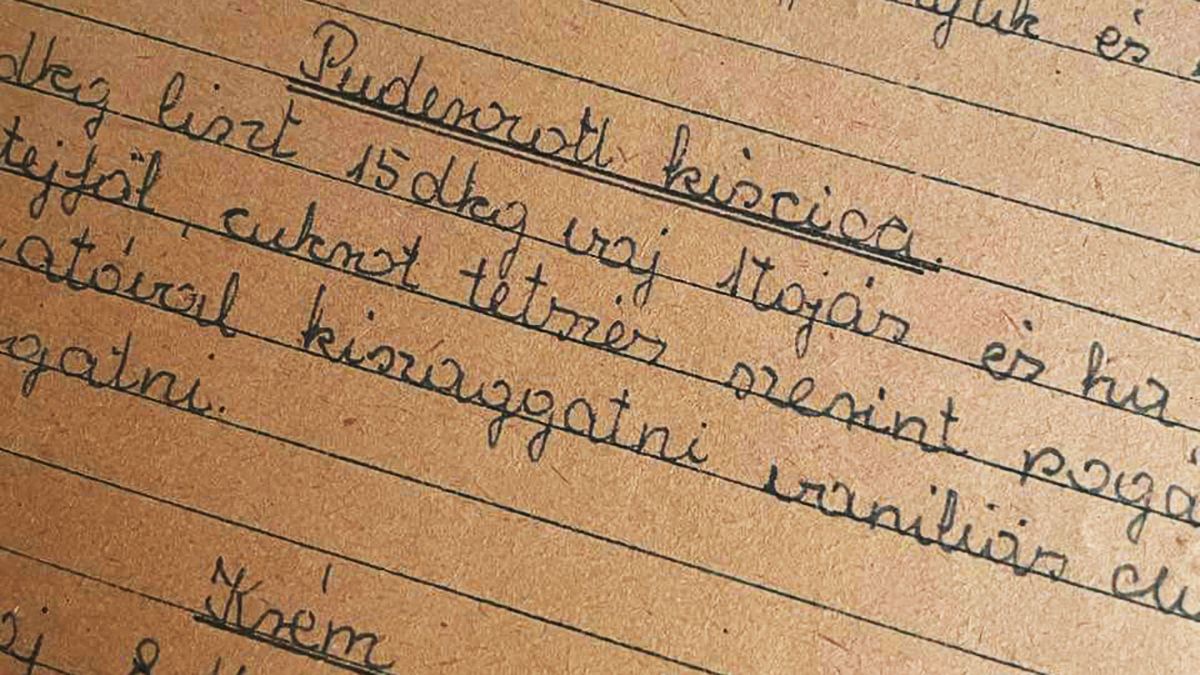 és
Puderozott kiscica.
dkg liszt 15 dkg vaj 1 tojás és
tejföl, cukrot tetszés szerint pogá
atóval kiszaggatni vaniliás cu
gatni.
Krém